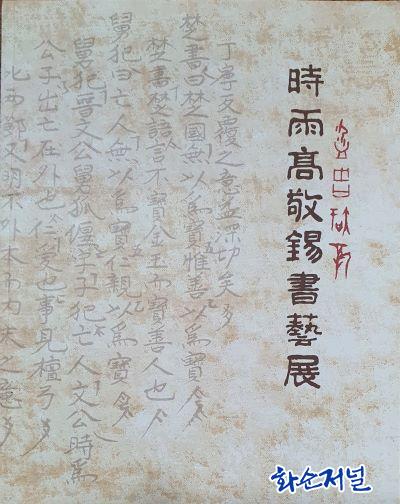 時雨髙敬錫書藝展
丁寧反覆之意益深切矣
楚書曰楚國無以爲寶惟善以爲寶
楚書楚語言不寶金玉而寶善人也
舅犯曰亡人無以爲寶仁親以爲寶
舅犯晋文公舅狐偃字子犯亡人文公時爲
公子出亡在外也仁愛也事見檀弓
此兩節又明不外本而內末之意
화순저널